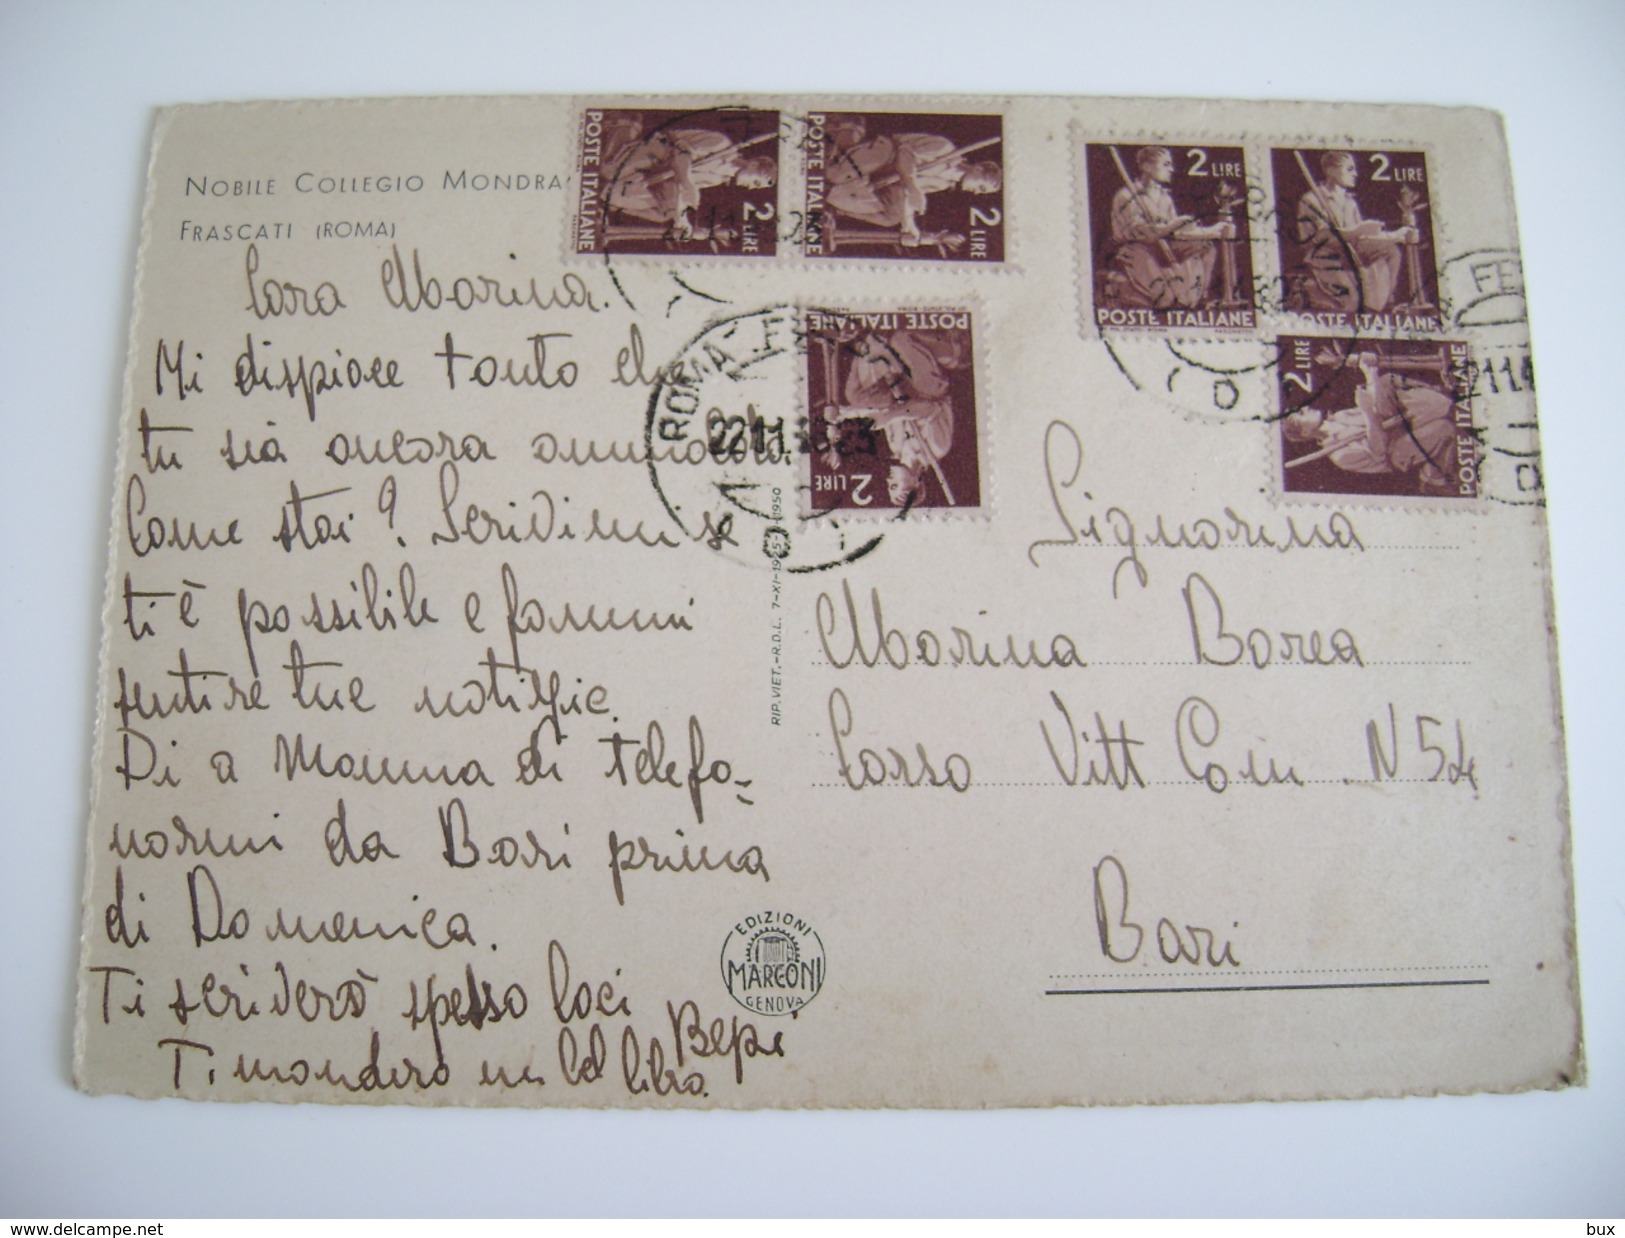 NOBILE COLLEGIO MONDRA
FRASCATI (ROMA)
Cara Marina.
Mi dispiace tanto che
tu sia ancora ammalata.
Come stai? Scrivimi se
ti è possibile e fammi
sentire tue notizie.
Di a Mamma di telefo-
narmi da Bari prima
di Domenica.
Ti scriverò spesso baci
Bepi
Ti manderò un bel libro.
POSTE ITALIANE
2 LIRE
POSTE ITALIANE
2 LIRE
POSTE ITALIANE
2 LIRE
2 LIRE
POSTE ITALIANE
2 LIRE
POSTE ITALIANE
2 LIRE
POSTE ITALIANE
ROMA
22 11
RIP. VIET.-R.D.L. 7-XI-1925-N-1950
EDIZIONI
MARCONI
GENOVA
Signorina
Marina Borea
Corso Vitt Em. N 54
Bari
bux
www.delcampe.net